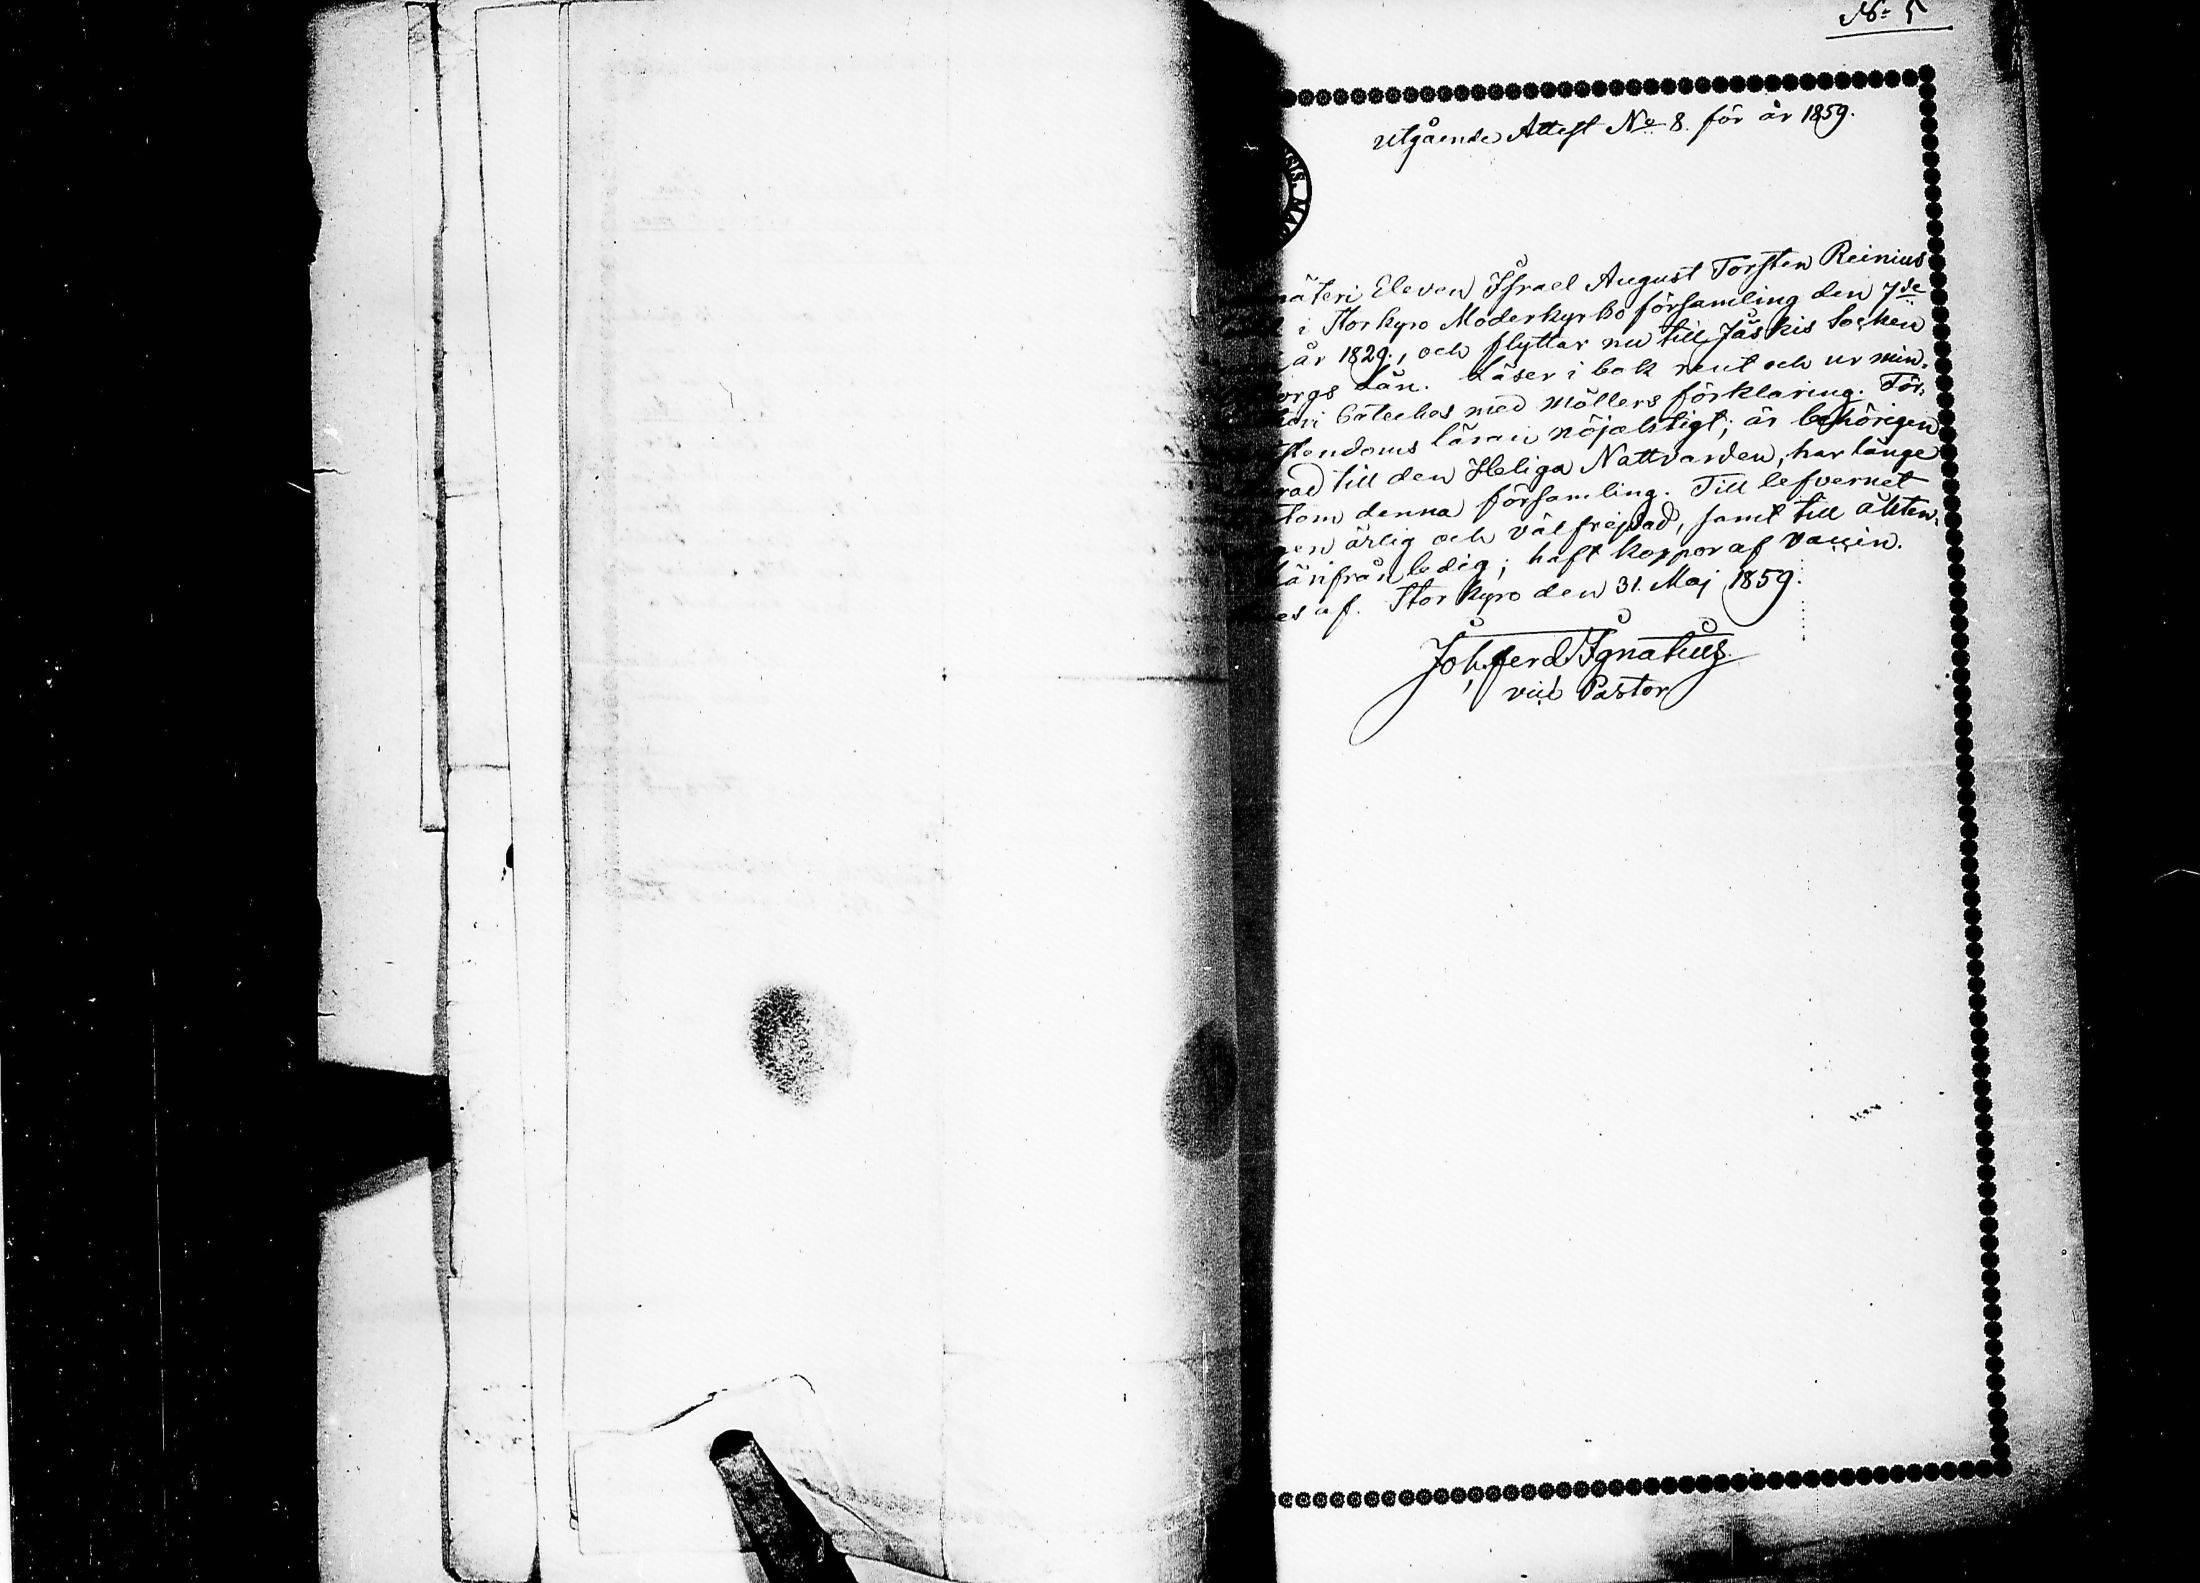 No 5
Utgående Attest No 8. för år 1859.
SIS. MAG
mäteri Eleven Israel August Torsten Reinius
i Storkyro Moderkyrko församling den 7de
år 1829., och flyttar nu till Jäskis Socken
orgs Län. Läser i bok rent och ur min-
Cateches med Möllers förklaring. För,
stendoms läran nöjaktigt; är behörigen
rad till den Heliga Nattvarden, har länge
tom denna församling. Till lefvernet
en ärlig och välfrejdad, samt till äkten,
härifrån ledig; haft koppor af vaccin.
es af. Storkyro den 31. Maj 1859.
Joh. Ferd. Ignatius.
vice Pastor